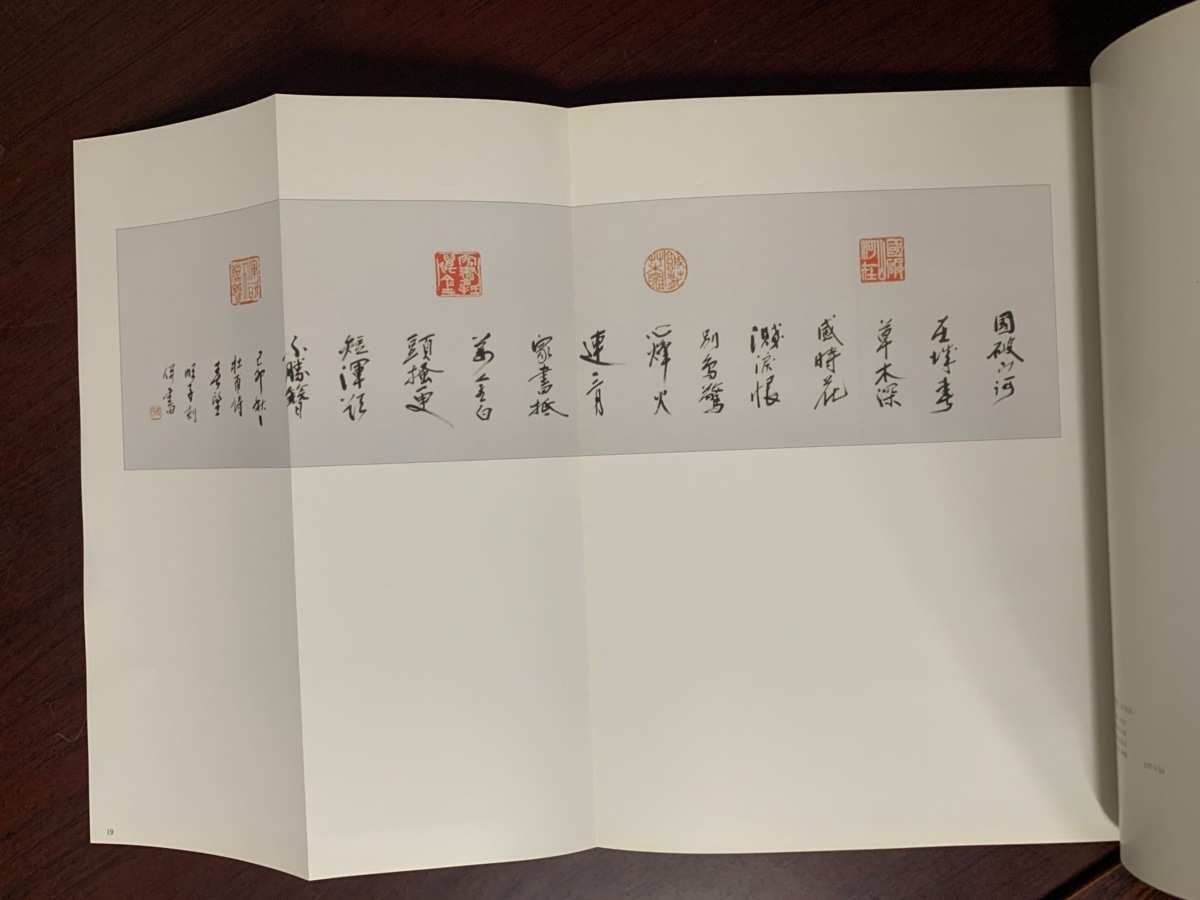 國破山河在
国破山河
在城春
草木深
感時花
濺淚恨
別鳥驚
心烽火
連三月
家書抵
萬金白
頭搔更
短渾欲
不勝簪
己卯秋
杜甫詩
春望
子刻
併書
19